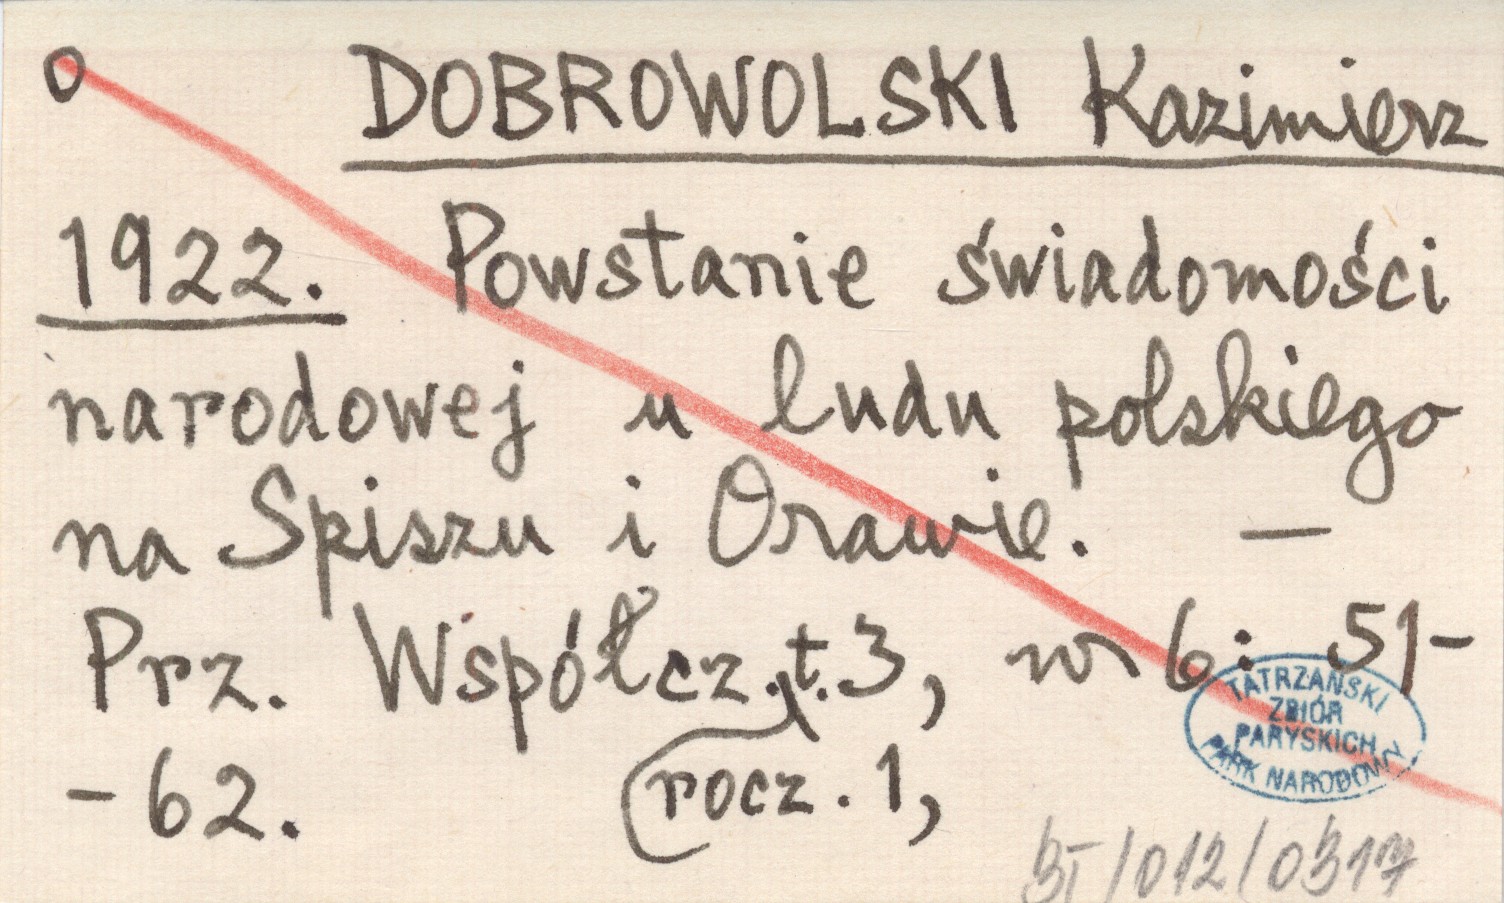 o DOBROWOLSKI Kazimierz
1922. Powstanie świadomości
narodowej u ludu polskiego
na Spiszu i Orawie. —
Prz. Współcz. t. 3, nr 6: 51-
-62. rocz. 1,
TATRZAŃSKI
ZBIÓR
PARYSKICH
PARK NARODOWY
/012/0317